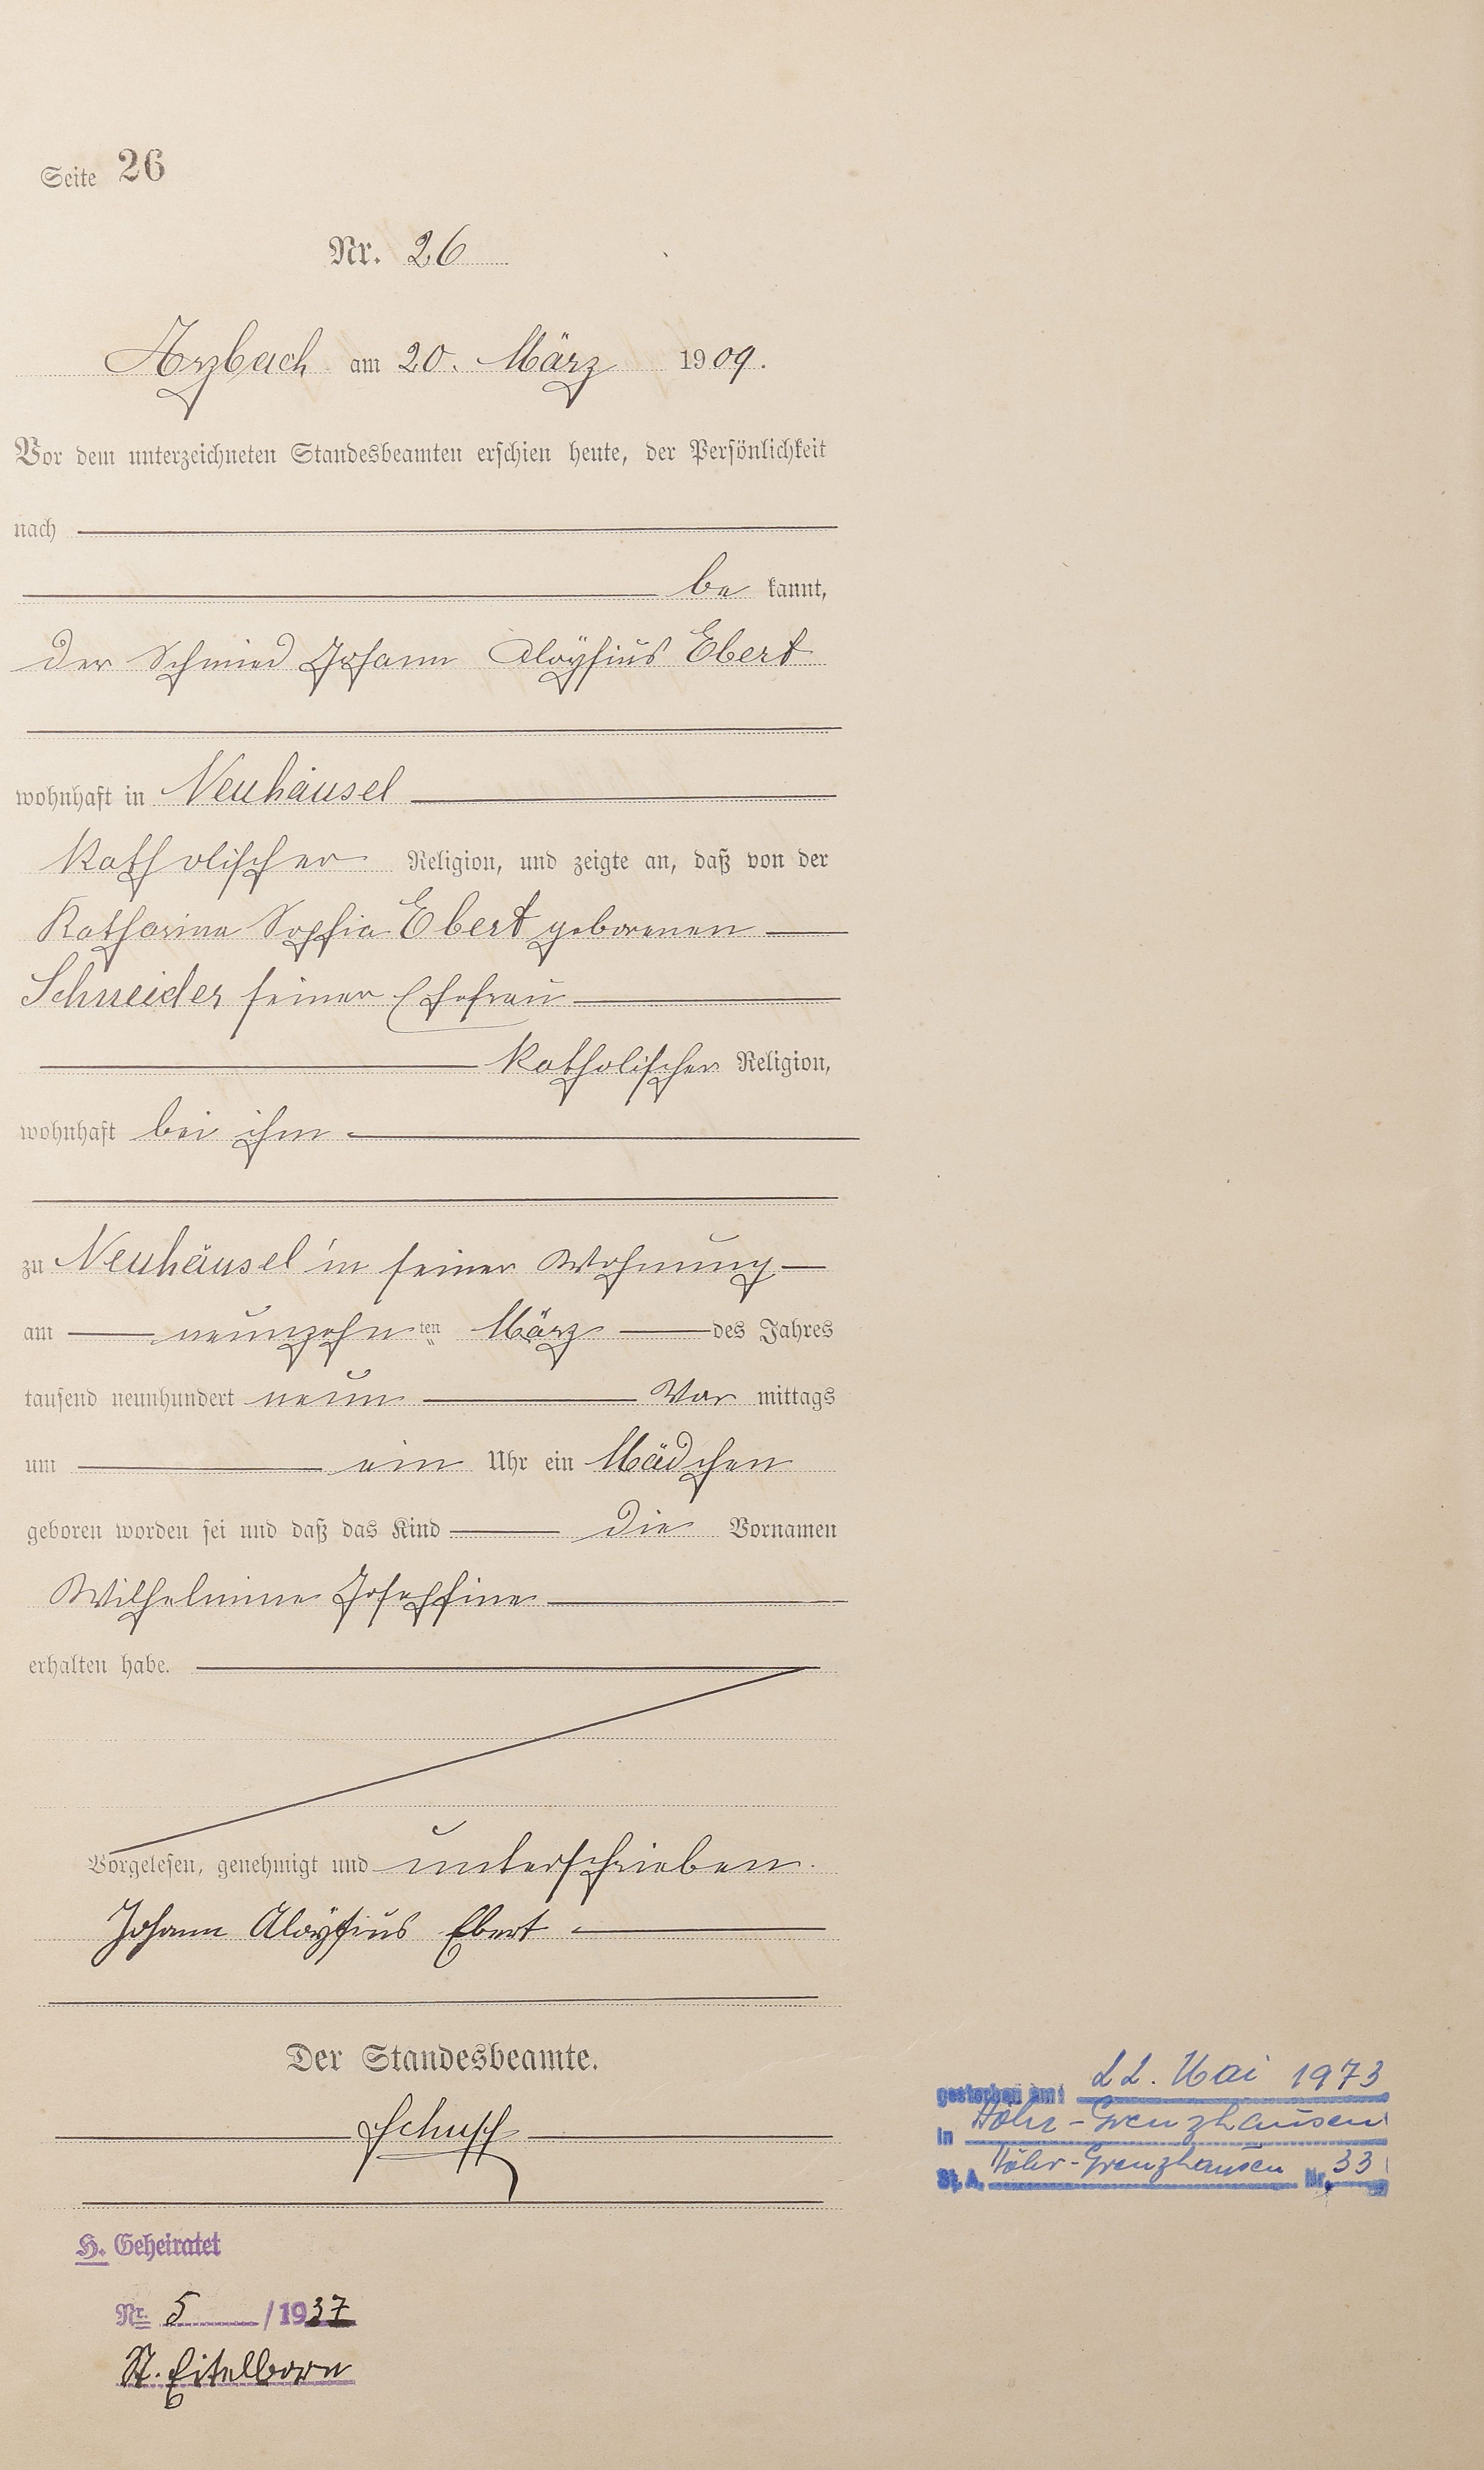 Seite 26
Nr. 26
Arzbach am 20. März 1909.
Vor dem unterzeichneten Standesbeamten erschien heute, der Persönlichkeit
nach
be kannt,
der Schmied Johann Aloysius Ebert
wohnhaft in Neuhäusel
katholischer Religion, und zeigte an, daß von der
Katharina Sophia Ebert geborenen
Schneider seiner Ehefrau
katholischer Religion,
wohnhaft bei ihm
zu Neuhäusel in seiner Wohnung
am neunzehn ten März des Jahres
tausend neunhundert neun Vor mittags
um ein Uhr ein Mädchen
geboren worden sei und daß das Kind die Vornamen
Wilhelmine Josephine
erhalten habe.
Vorgelesen, genehmigt und unterschrieben.
Johann Aloysius Ebert
Der Standesbeamte.
Schupp
H. Geheiratet
Nr. 5 /1937
St. Eitelborn
gestorben am: 22. Mai 1973
in Höhr-Grenzhausen
St. A. Höhr-Grenzhausen Nr. 33